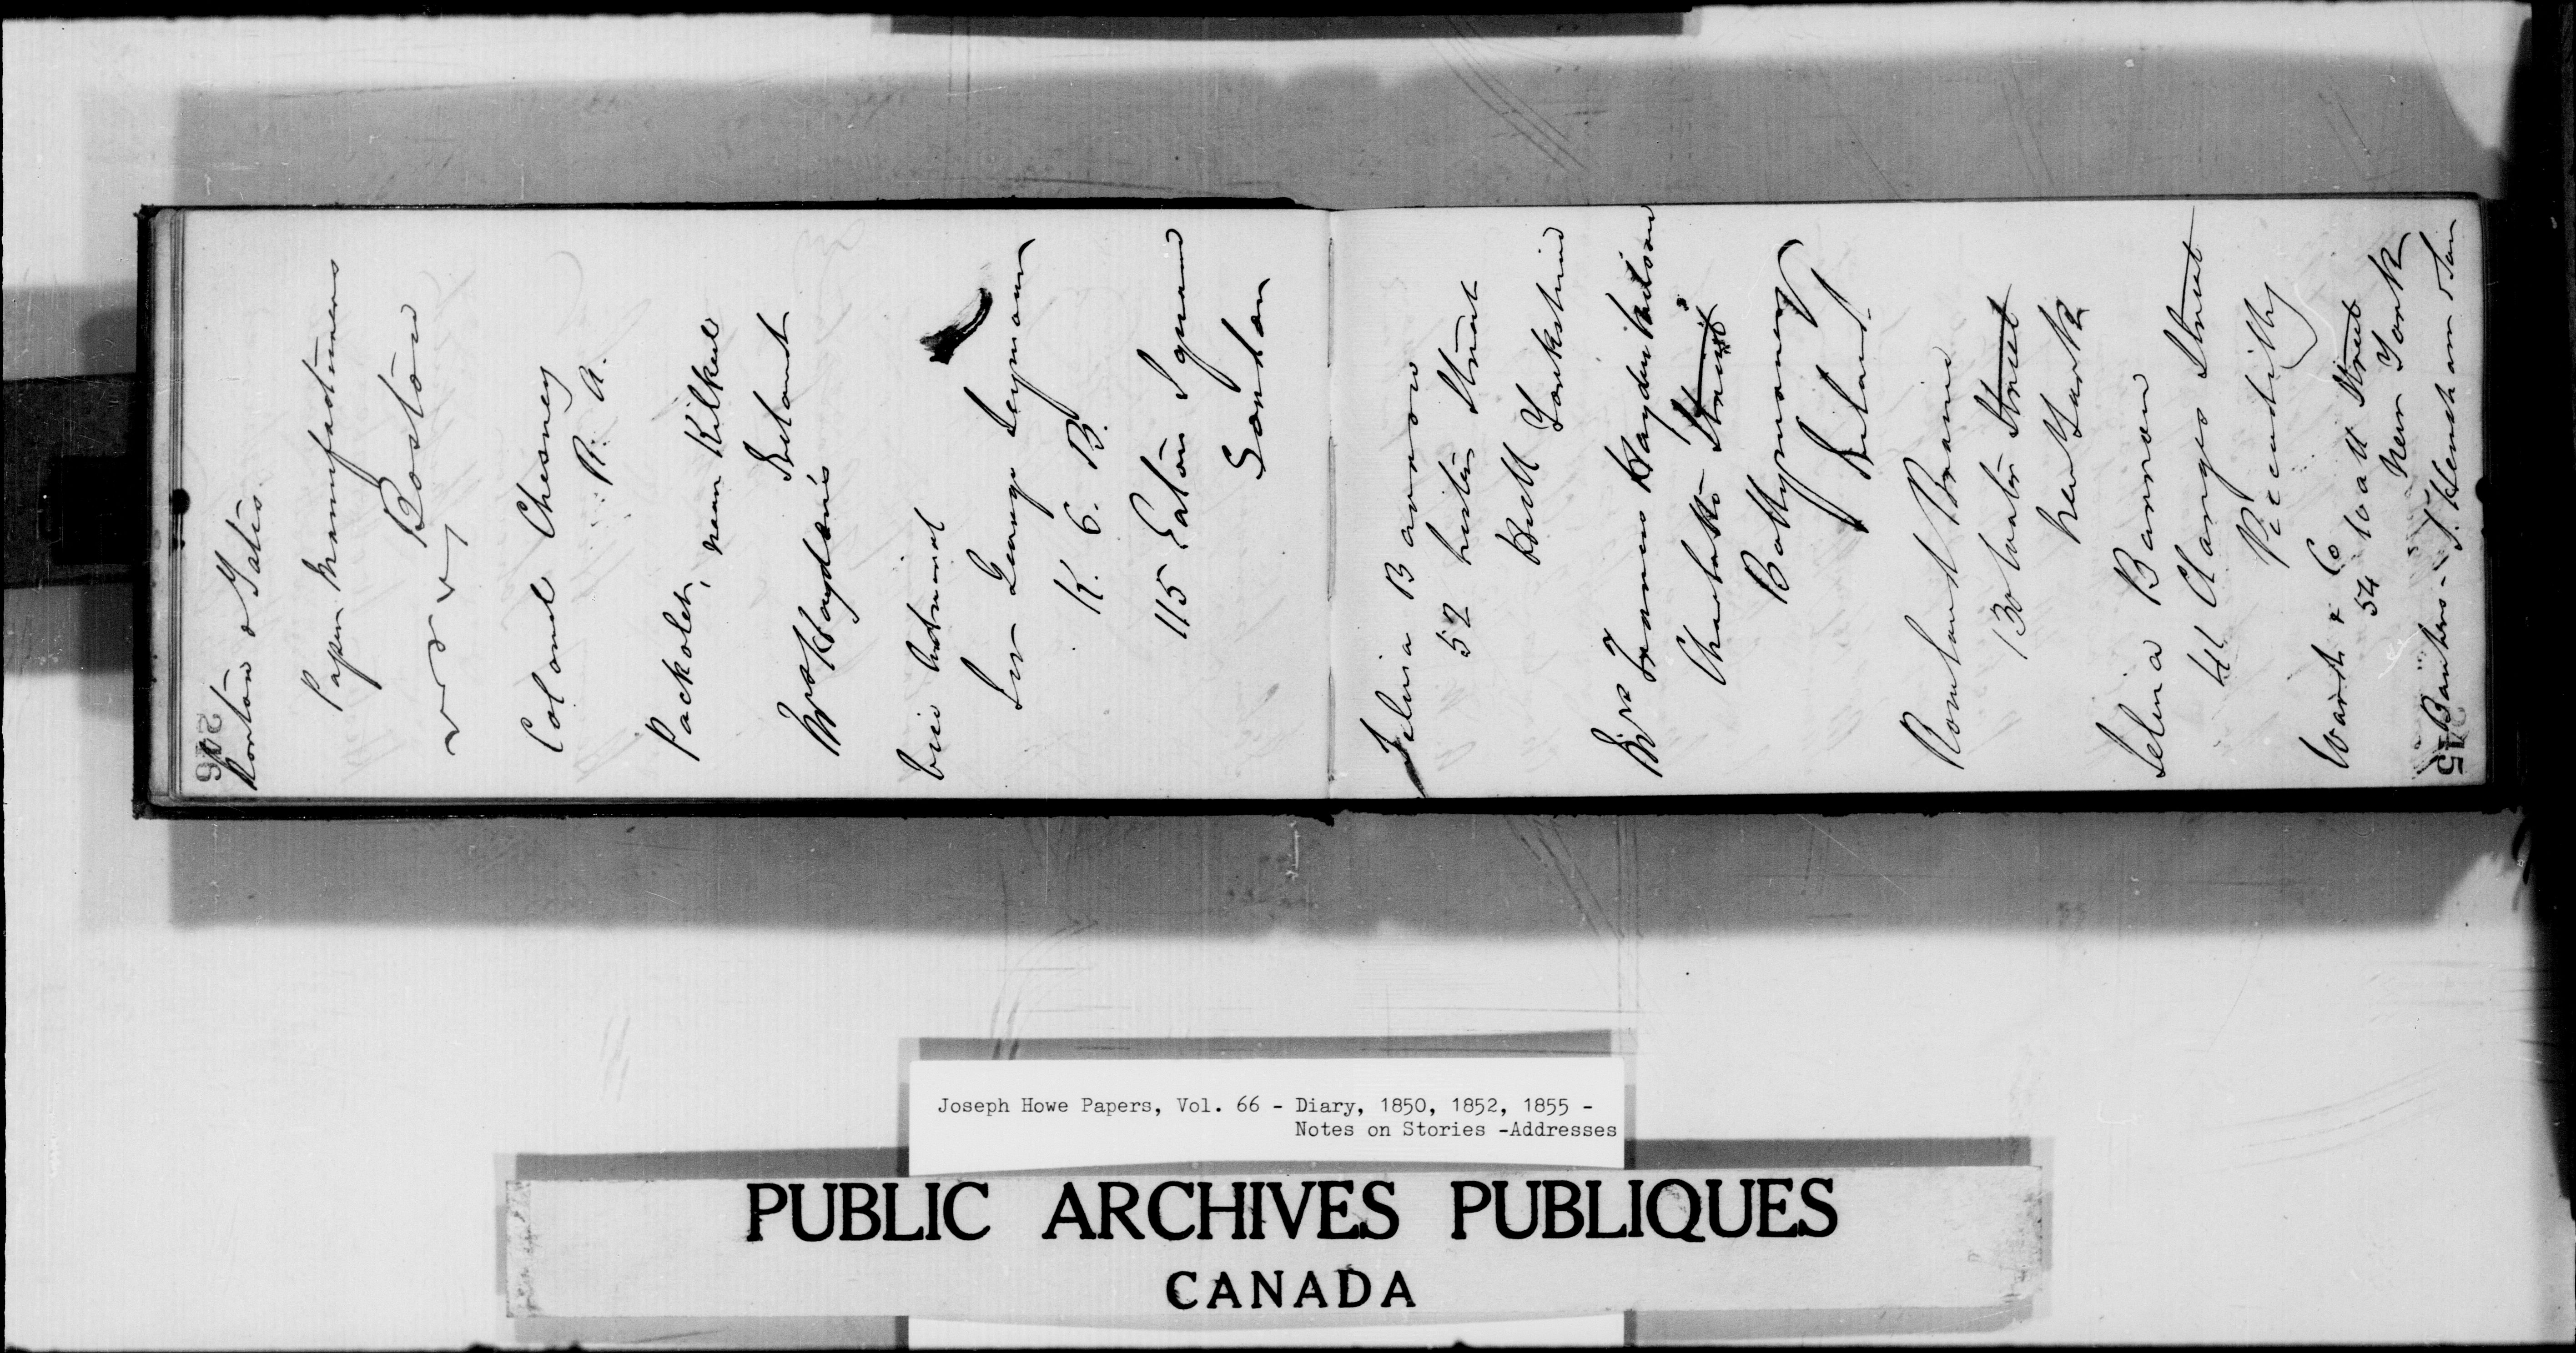 Rowton & Gates.
Paper Manufacturers
Boston
Colonel Chesney
R. A.
Packolet, near Kilkeel
Ireland
Mrs Haydens
Vice Admiral
Sir George Seymour
K. C. B.
115 Eaton Square
London
Selina Barrow
52 Street
Hull Yorkshire
Mrs Frances Haydn
Charlotte Street
Ballymoney
Ireland
Rowland
130 Water Street
New York
Selina Barrow
44 Clarges Street
Piccadilly
Ward & Co
54 Wall Street
New York
Bankers - J. Henshaw & Son
206
215
Joseph Howe Papers, Vol. 66 - Diary, 1850, 1852, 1855 -
Notes on Stories -Addresses
PUBLIC ARCHIVES PUBLIQUES
CANADA